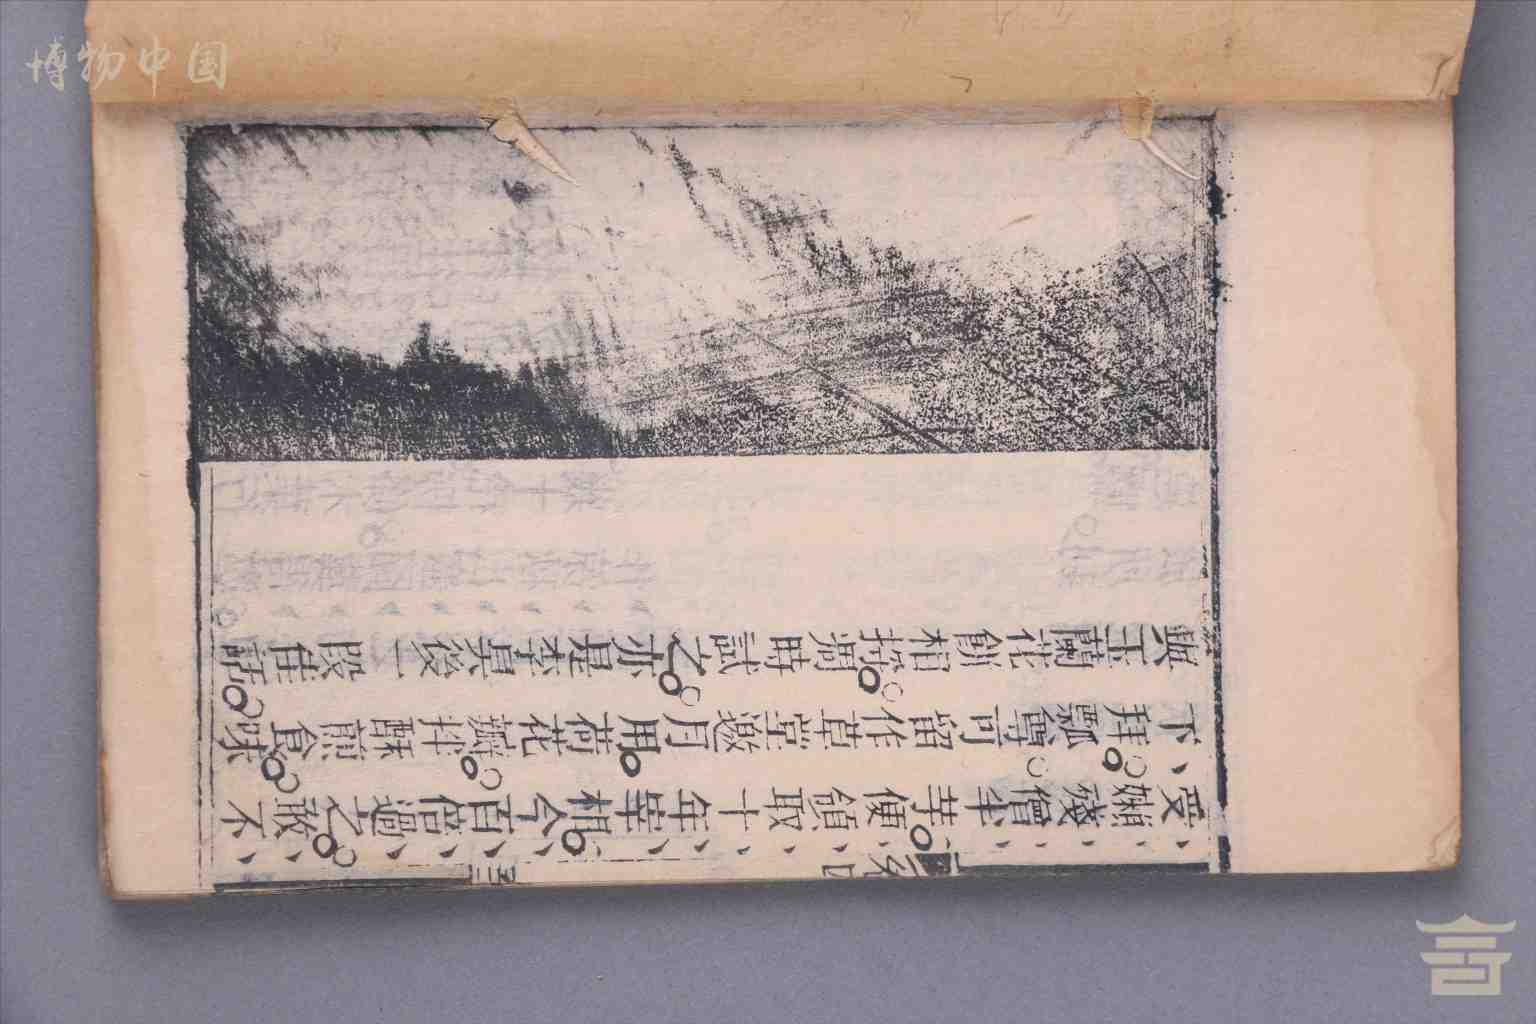 博物中国
受嬾殘僧半芋便領取十年宰相今百倍過之敢不
下拜瓢尊可留作草堂邀月用荷花瓣拌酥煎食味
與玉蘭花餅相埒遇時試之亦是李昊後一段佳話